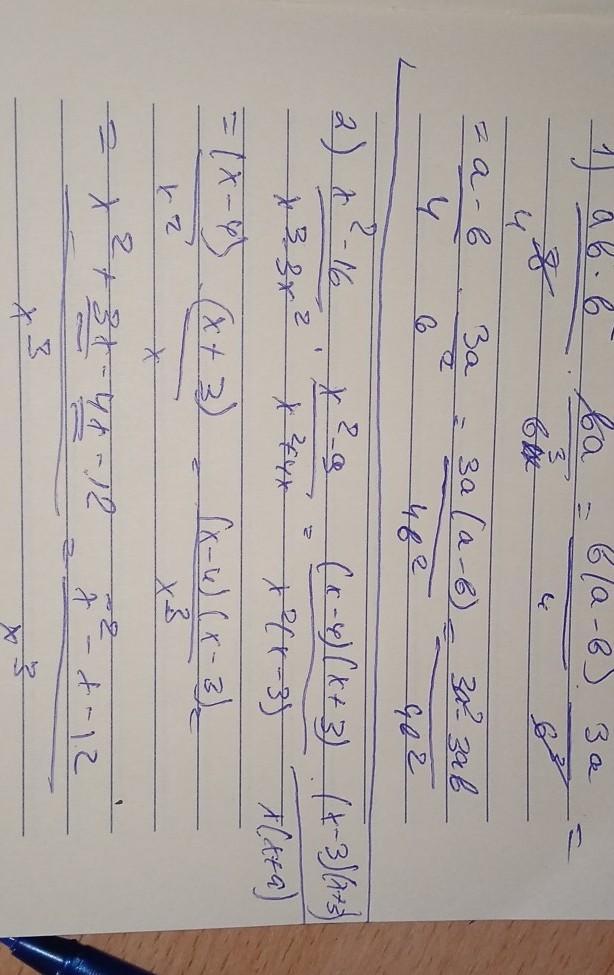 1) (ab - b²)/8 · 6a/b³ = b(a-b)/4 · 3a/b³ =
= (a-b)/4 · 3a/b² = 3a(a-b)/4b² = (3a²-3ab)/4b²
2) (x²-16)/(x³-3x²) · (x²-9)/(x²+4x) = (x-4)(x+3)/x²(x-3) · (x-3)(x+3)/x(x+4)
= (x-4)/x² · (x+3)/x = (x-4)(x-3)/x³ =
= (x²+3x-4x-12)/x³ = (x²-x-12)/x³